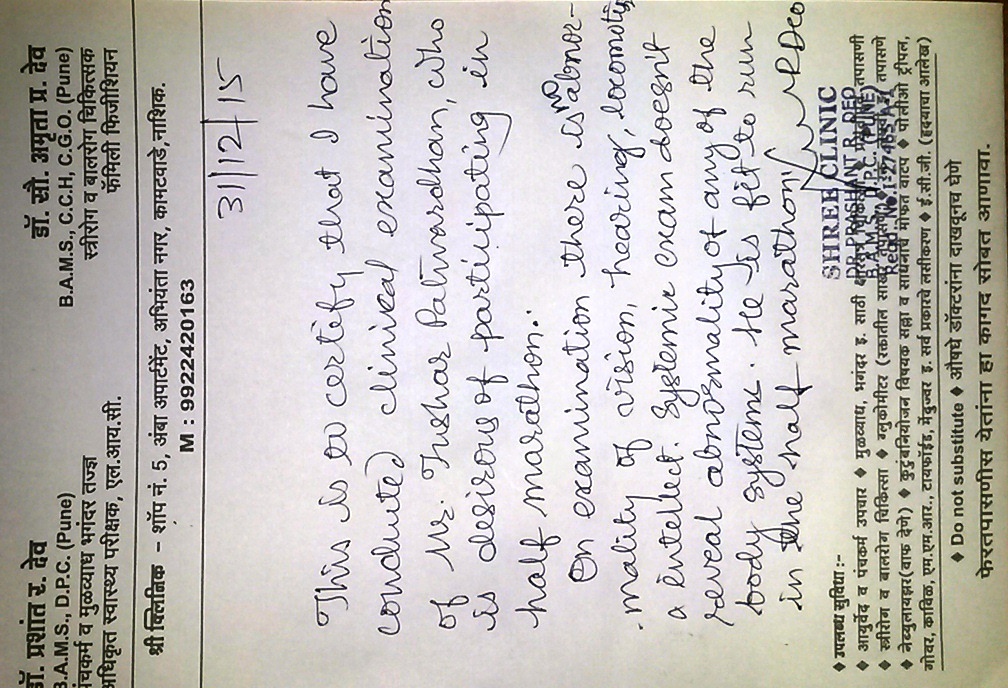 डॉ. प्रशांत र. देव
B.A.M.S., D.P.C. (Pune)
पंचकर्म व मुळव्याध भगंदर तज्ज्ञ
अधिकृत स्वास्थ्य परीक्षक, एल.आय.सी.
डॉ. सौ. अमृता प्र. देव
B.A.M.S., C.C.H, C.G.O. (Pune)
स्त्रीरोग व बालरोग चिकित्सक
फॅमिली फिजीशियन
श्री क्लिनीक – शॉप नं. 5, अंबा अपार्टमेंट, अभियंता नगर, कामटवाडे, नाशिक.
M : 9922420163
31/12/15
This is to certify that I have
conducted clinical examination
of Mr. Tushar Patwardhan, who
is desirous of participating in
half marathon.
On examination there is no abnor-
mality of vision, hearing, locomotion
& intellect. Systemic exam doesn't
reveal abnormality of any of the
body systems. He is fit to run
in the half marathon.
PRDeo
SHREE CLINIC
DR. PRASHANT R. DEO
B.A.M.S., D.P.C. (PUNE)
Regd. No.
♦ उपलब्ध सुविधा :-
♦ आयुर्वेद व पंचकर्म उपचार ♦ मुळव्याध, भगंदर इ. साठी
♦ स्त्रीरोग व बालरोग चिकित्सा ♦ ग्लुकोमीटर (रक्तातील साखर तपासणी)
♦ नेब्युलायझर (वाफ देणे) ♦ कुटुंबनियोजन विषयक सल्ला व साधनांचे मोफत वाटप ♦ पोलीओ, ट्रीपल,
गोवर, काविळ, एम.एम.आर., टायफॉईड, मेंदुज्वर इ. सर्व प्रकारचे लसीकरण ♦ ई.सी.जी. (हृदयाचा आलेख)
♦ Do not substitute ♦ औषधे डॉक्टरांना दाखवूनच घेणे
फेरतपासणीस येतांना हा कागद सोबत आणावा.